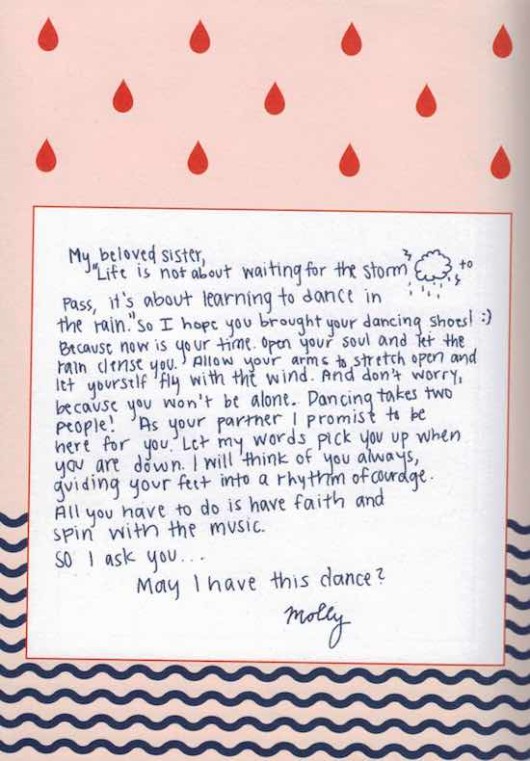 My beloved sister,
"Life is not about waiting for the storm to
pass, it's about learning to dance in
the rain." So I hope you brought your dancing shoes! :)
Because now is your time. Open your soul and let the
rain clense you. Allow your arms to stretch open and
let yourself fly with the wind. And don't worry,
because you won't be alone. Dancing takes two
people! As your partner I promise to be
here for you. Let my words pick you up when
you are down. I will think of you always,
guiding your feet into a rhythm of courage.
All you have to do is have faith and
spin with the music.
So I ask you...
May I have this dance?
Molly